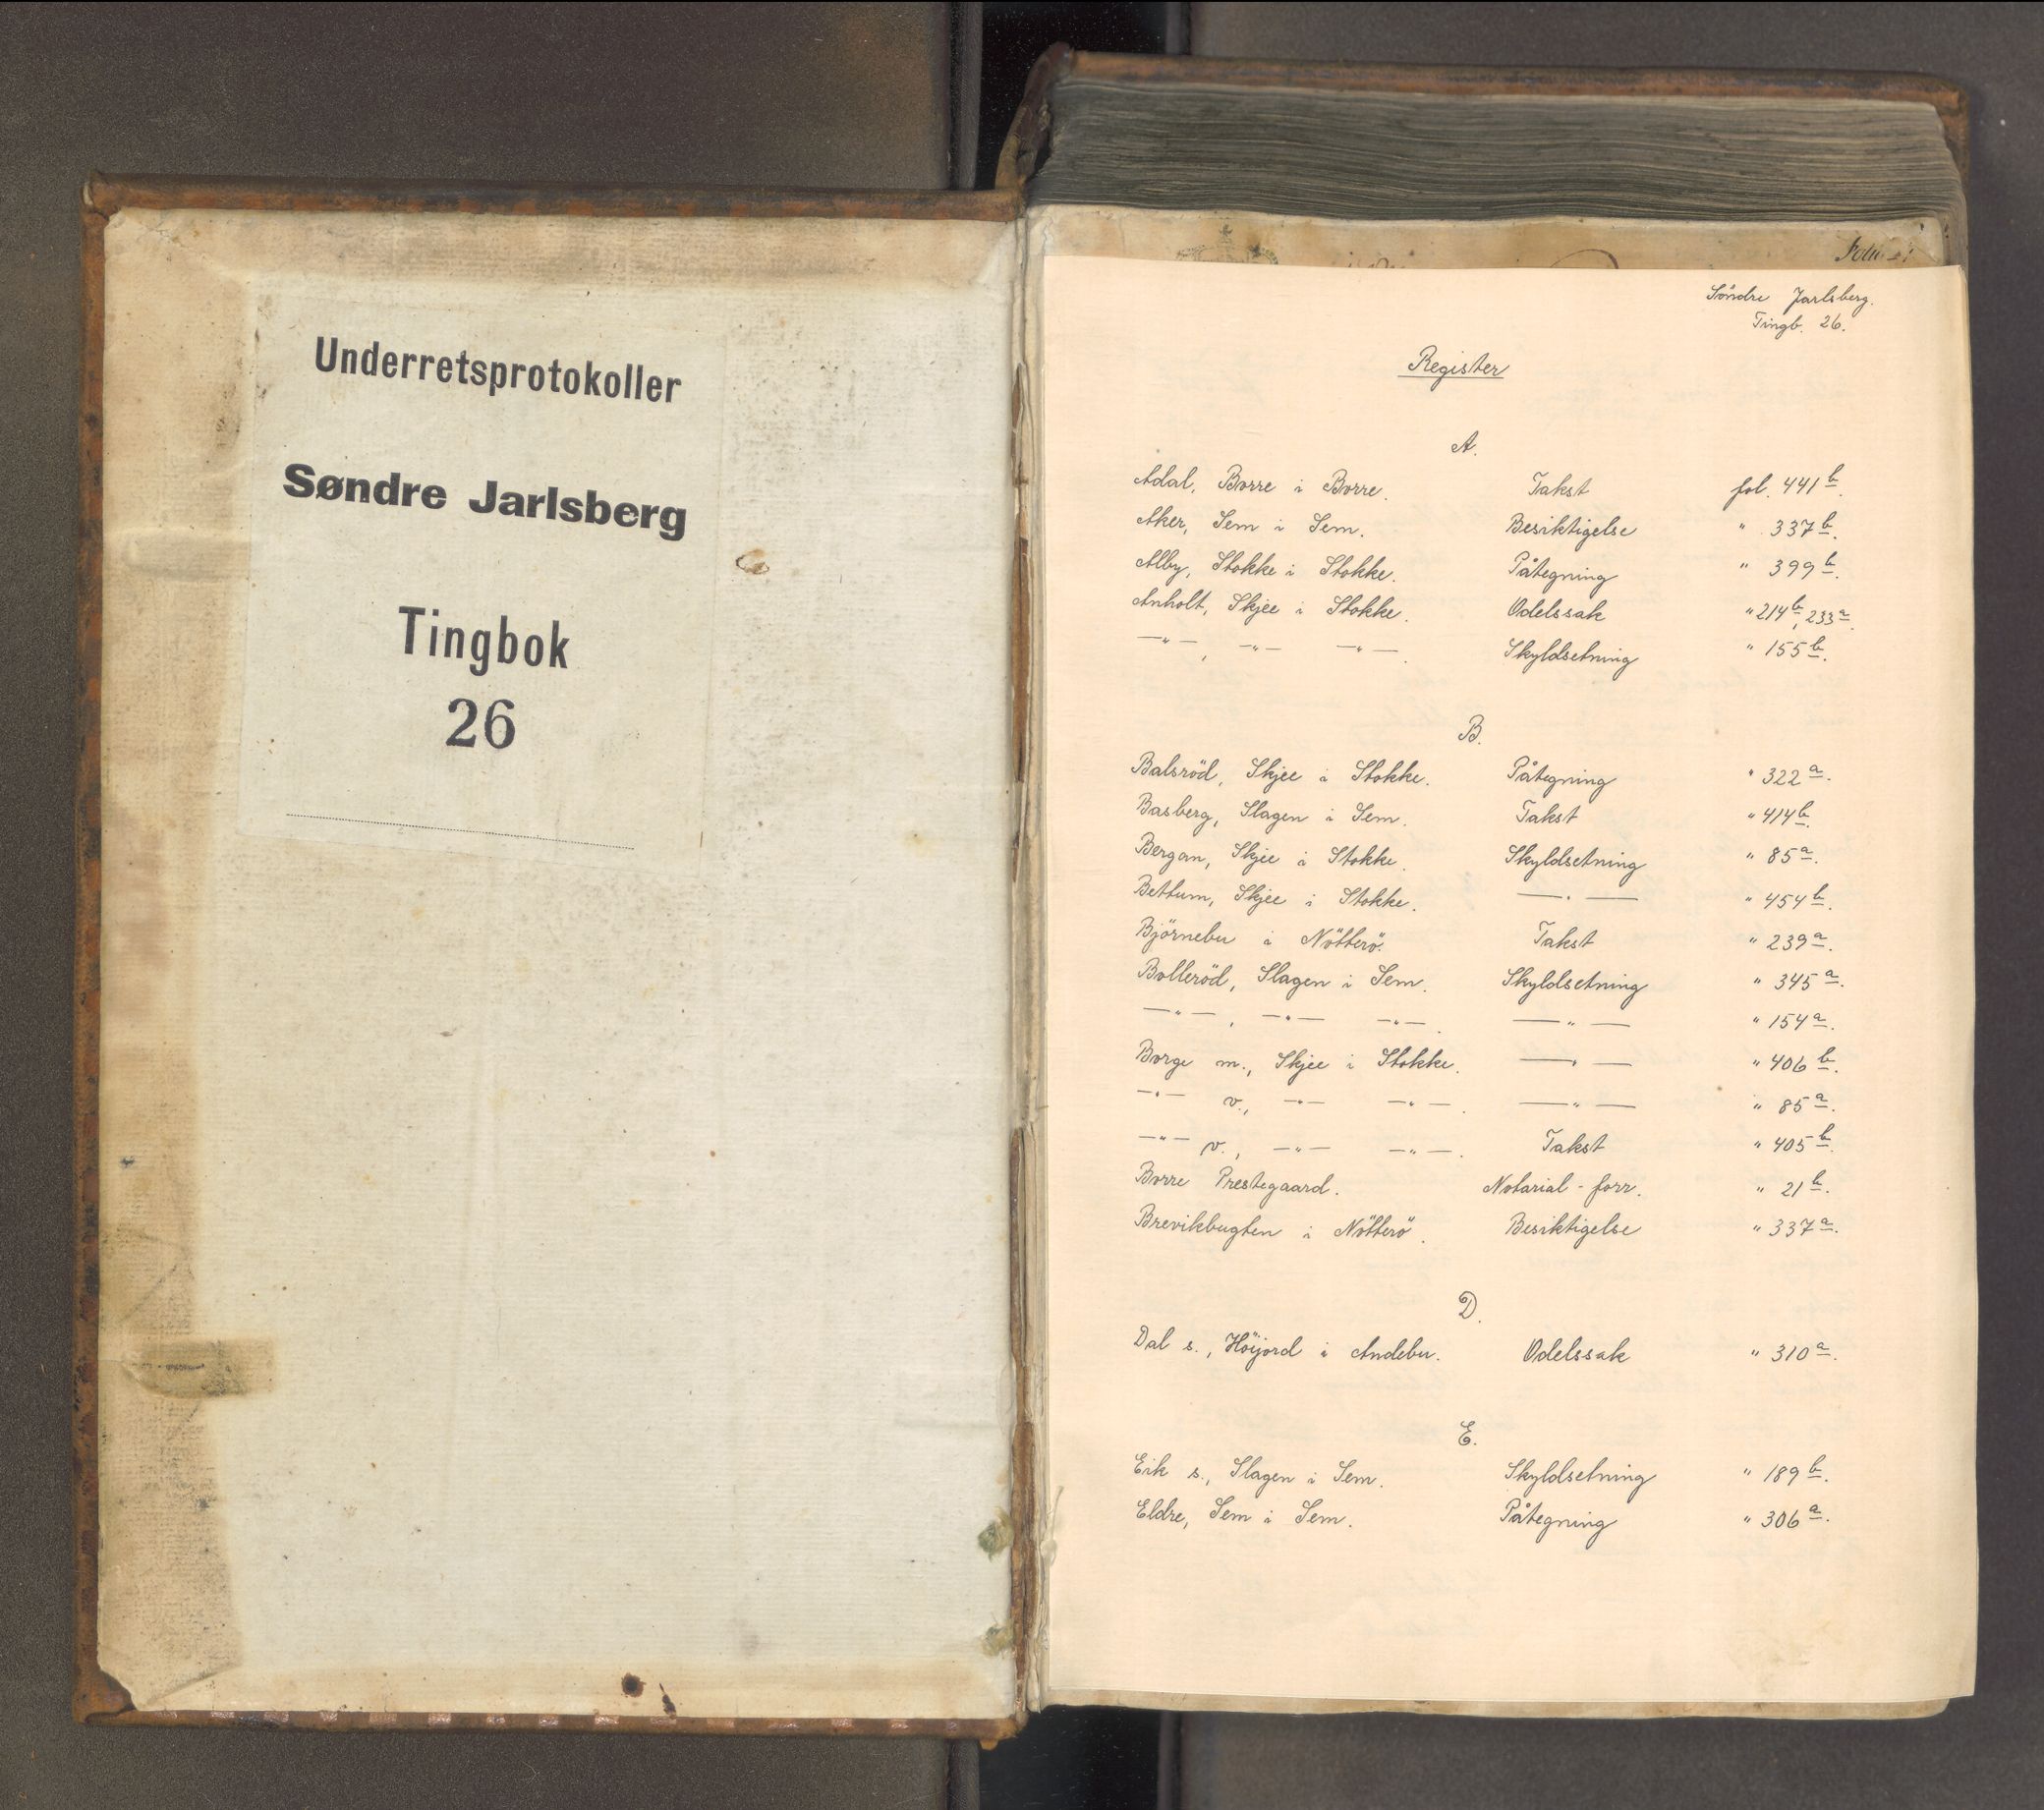 Underretsprotokoller
Søndre Jarlsberg
Tingbok
26
Søndre Jarlsberg.
Tingb. 26.
Register
A.
Adal, Borre i Borre. Takst fol. 441 b.
Aker, Sem i Sem. Besiktigelse " 337 b.
Alby, Stokke i Stokke. Påtegning " 399 b.
Anholt, Skjee i Stokke. Odelssak " 214 b, 233 a.
—"—, —"— —"—. Skyldsetning " 155 b.
B.
Balsröd, Skjee i Stokke. Påtegning " 322 a.
Basberg, Slagen i Sem. Takst " 414 b.
Bergan, Skjee i Stokke. Skyldsetning " 85 a.
Bettum, Skjee i Stokke. —"— " 454 b.
Björnebu i Nötterö. Takst " 239 a.
Bolleröd, Slagen i Sem. Skyldsetning " 345 a.
—"—, —"— —"—. —"— " 154 a.
Borge m., Skjee i Stokke. —"— " 406 b.
—"— v., —"— —"—. —"— " 85 a.
—"— v., —"— —"—. Takst " 405 b.
Borre Prestegaard. Notarial-forr. " 21 b.
Brevikbugten i Nötterö. Besiktigelse " 337 a.
D.
Dal s., Höijord i Andebu. Odelssak " 310 a.
E.
Eik s., Slagen i Sem. Skyldsetning " 189 b.
Eldre, Sem i Sem. Påtegning " 306 a.